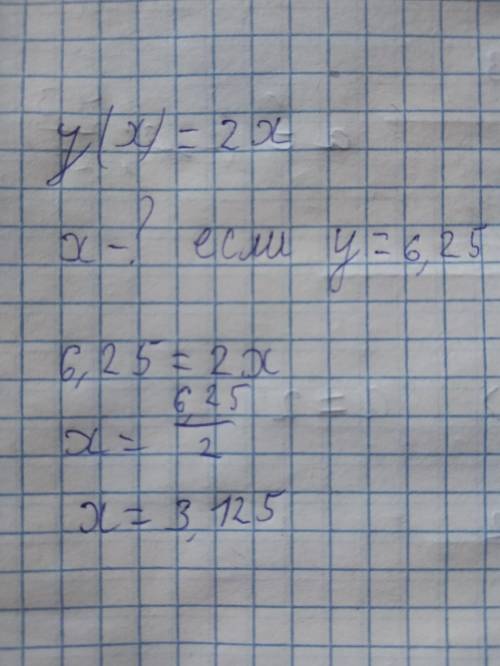 y(x) = 2x
x - ? если y = 6,25
6,25 = 2x
x = 6,25/2
x = 3,125